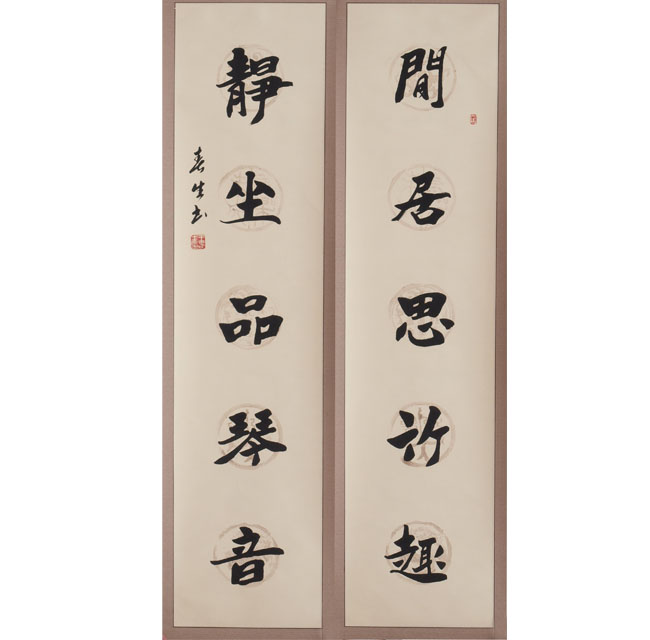 閒居思竹趣
靜坐品琴音
春生书